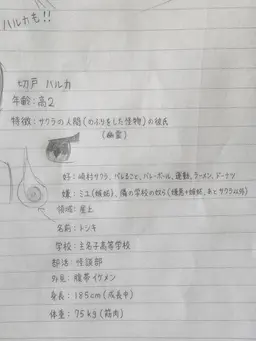 ハルカも!!
切戸 ハルカ
年齢:高2
特徴:サクラの人間(のふりをした怪物)の彼氏
(幽霊)
好:崎村サクラ、バレること、バレーボール、運動、ラーメン、ドーナツ
嫌:ミユ(嫉妬)、隣の学校の奴ら(嫌悪+嫉妬、あとサクラ以外)
領域:屋上
名前:トシキ
学校:主名子高等学校
部活:怪談部
外見:腹帯イケメン
身長:185cm(成長中)
体重:75kg(筋肉)